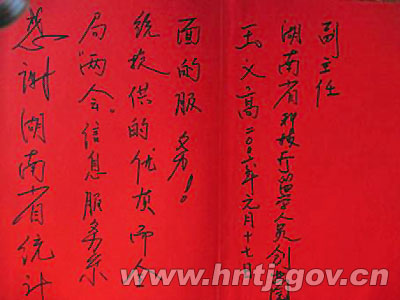 感谢湖南省统计
局“两会”信息服务系
统提供的优质而全
面的服务!
王文高二00六年元月十七日
湖南省科技厅留学人员创业园
副主任
www.hntj.gov.cn